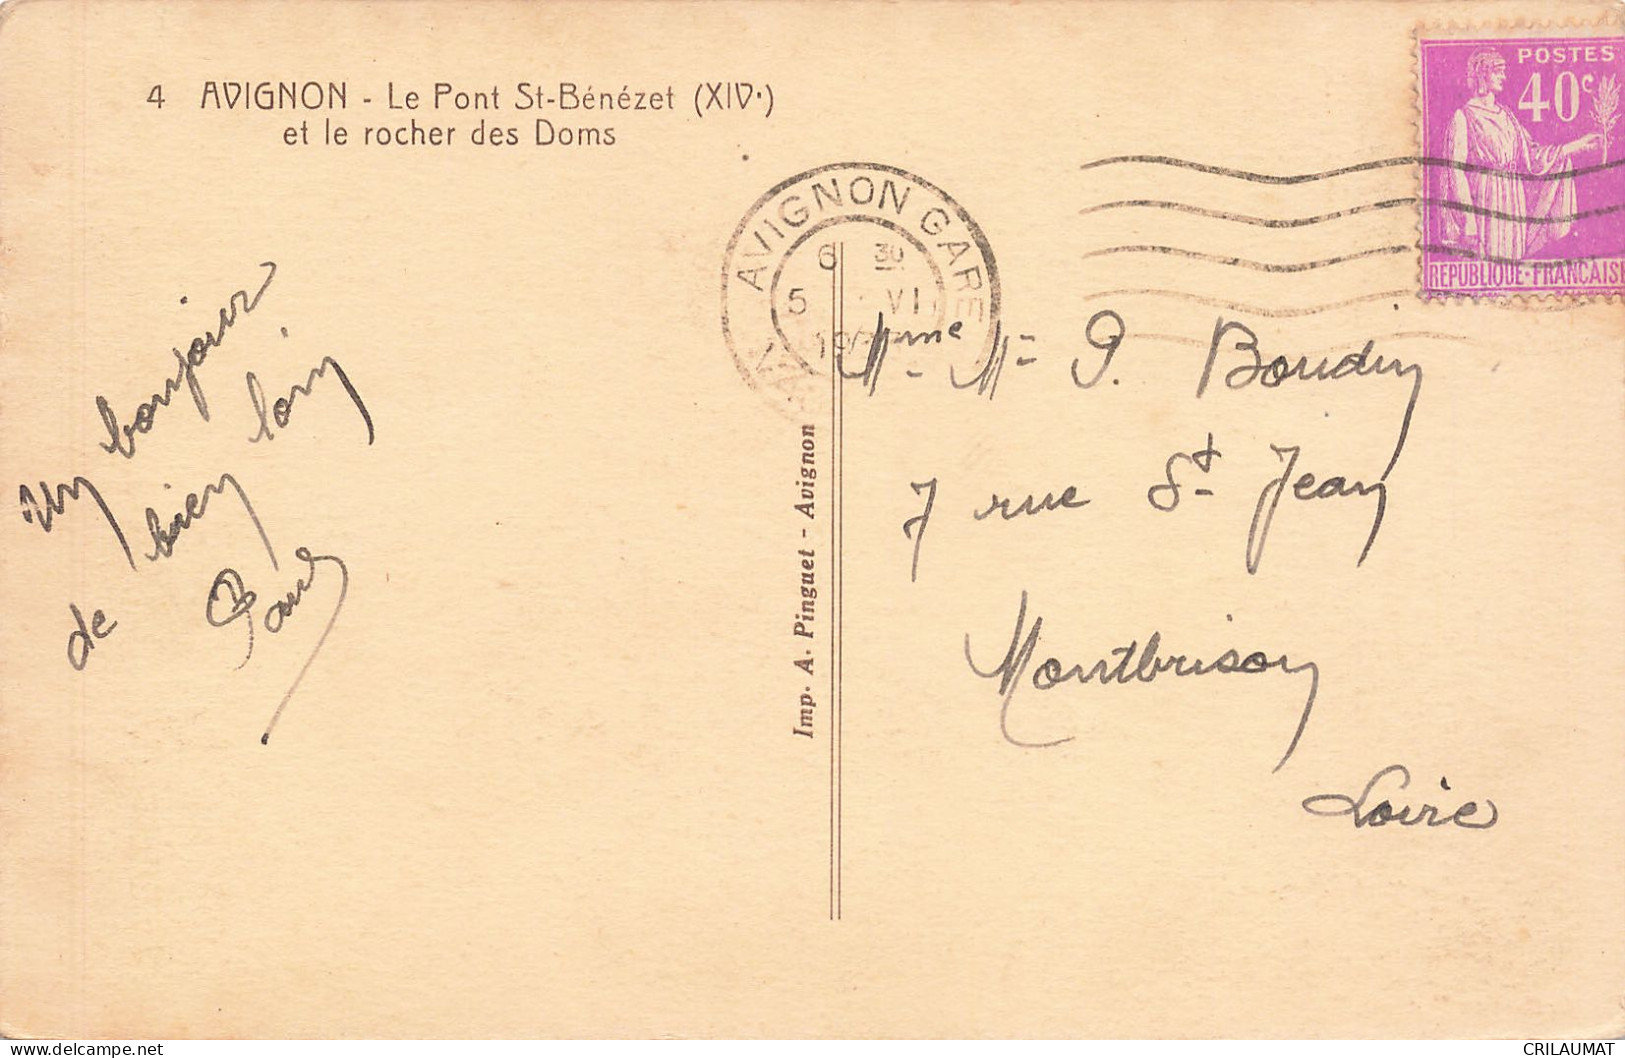 4 AVIGNON - Le Pont St-Bénézet (XIVe)
et le rocher des Doms
POSTES
40c
REPUBLIQUE-FRANÇAISE
AVIGNON GARE
6 30
5 VI
19
Un bonjour
de bien loin
Imp. A. Pinguet - Avignon
Mme Mr P. Boudin
7 rue St Jean
Montbrison
Loire
www.delcampe.net
CRILAUMAT